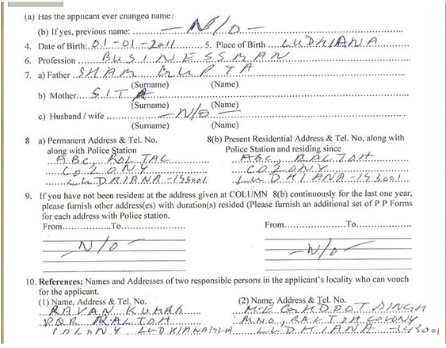 (a) Has the applicant ever changed name?
(b) If yes, previous name: N/o
4. Date of Birth: 01-01-2011 5. Place of Birth LUDHIANA
6. Profession BUSINESSMAN
7. a) Father SHAM GUPTA
(Surname) (Name)
b) Mother SITA
(Surname) (Name)
c) Husband / wife N/o
(Surname) (Name)
8 a) Permanent Address & Tel. No. 8(b) Present Residential Address & Tel. No, along with
along with Police Station Police Station and residing since
ABC, ABC, RALTOH
COLONY COLONY
LUDHIANA-143001 LUDHIANA-143001
9. If you have not been resident at the address given at COLUMN 8(b) continuously for the last one year,
please furnish other address(es) with duration(s) resided (Please furnish an additional set of P P Forms
for each address with Police station.
From............To............ From............To............
N/o N/o
10. References: Names and Addresses of two responsible persons in the applicant's locality who can vouch
for the applicant.
(1) Name, Address & Tel. No. (2) Name, Address & Tel. No.
RAVAN KUMAR SINGH
PQR RALTOH MNO, RALTOH COLONY
COLONY, LUDHIANA LUDHIANA-143001